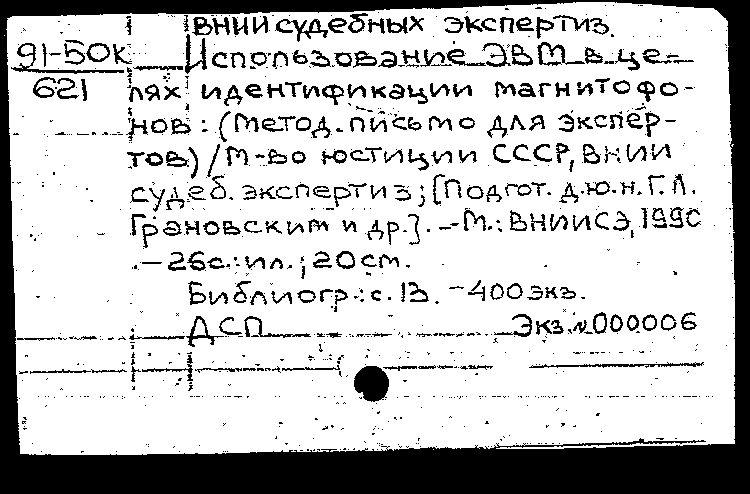 ВНИИ судебных экспертиз.
91-50к Использование ЭВМ в це-
621 лях идентификации магнитофо-
нов: (Метод. письмо для экспер-
тов) / М-во юстиции СССР, ВНИИ
судеб. экспертиз; [Подгот. д.ю.н. Г.Л.
Грановским и др.]. – М.: ВНИИСЭ, 1990
. – 26с.: ил.; 20см.
Библиогр.: с. 13. – 400 экз.
ДСП Экз. № 000006